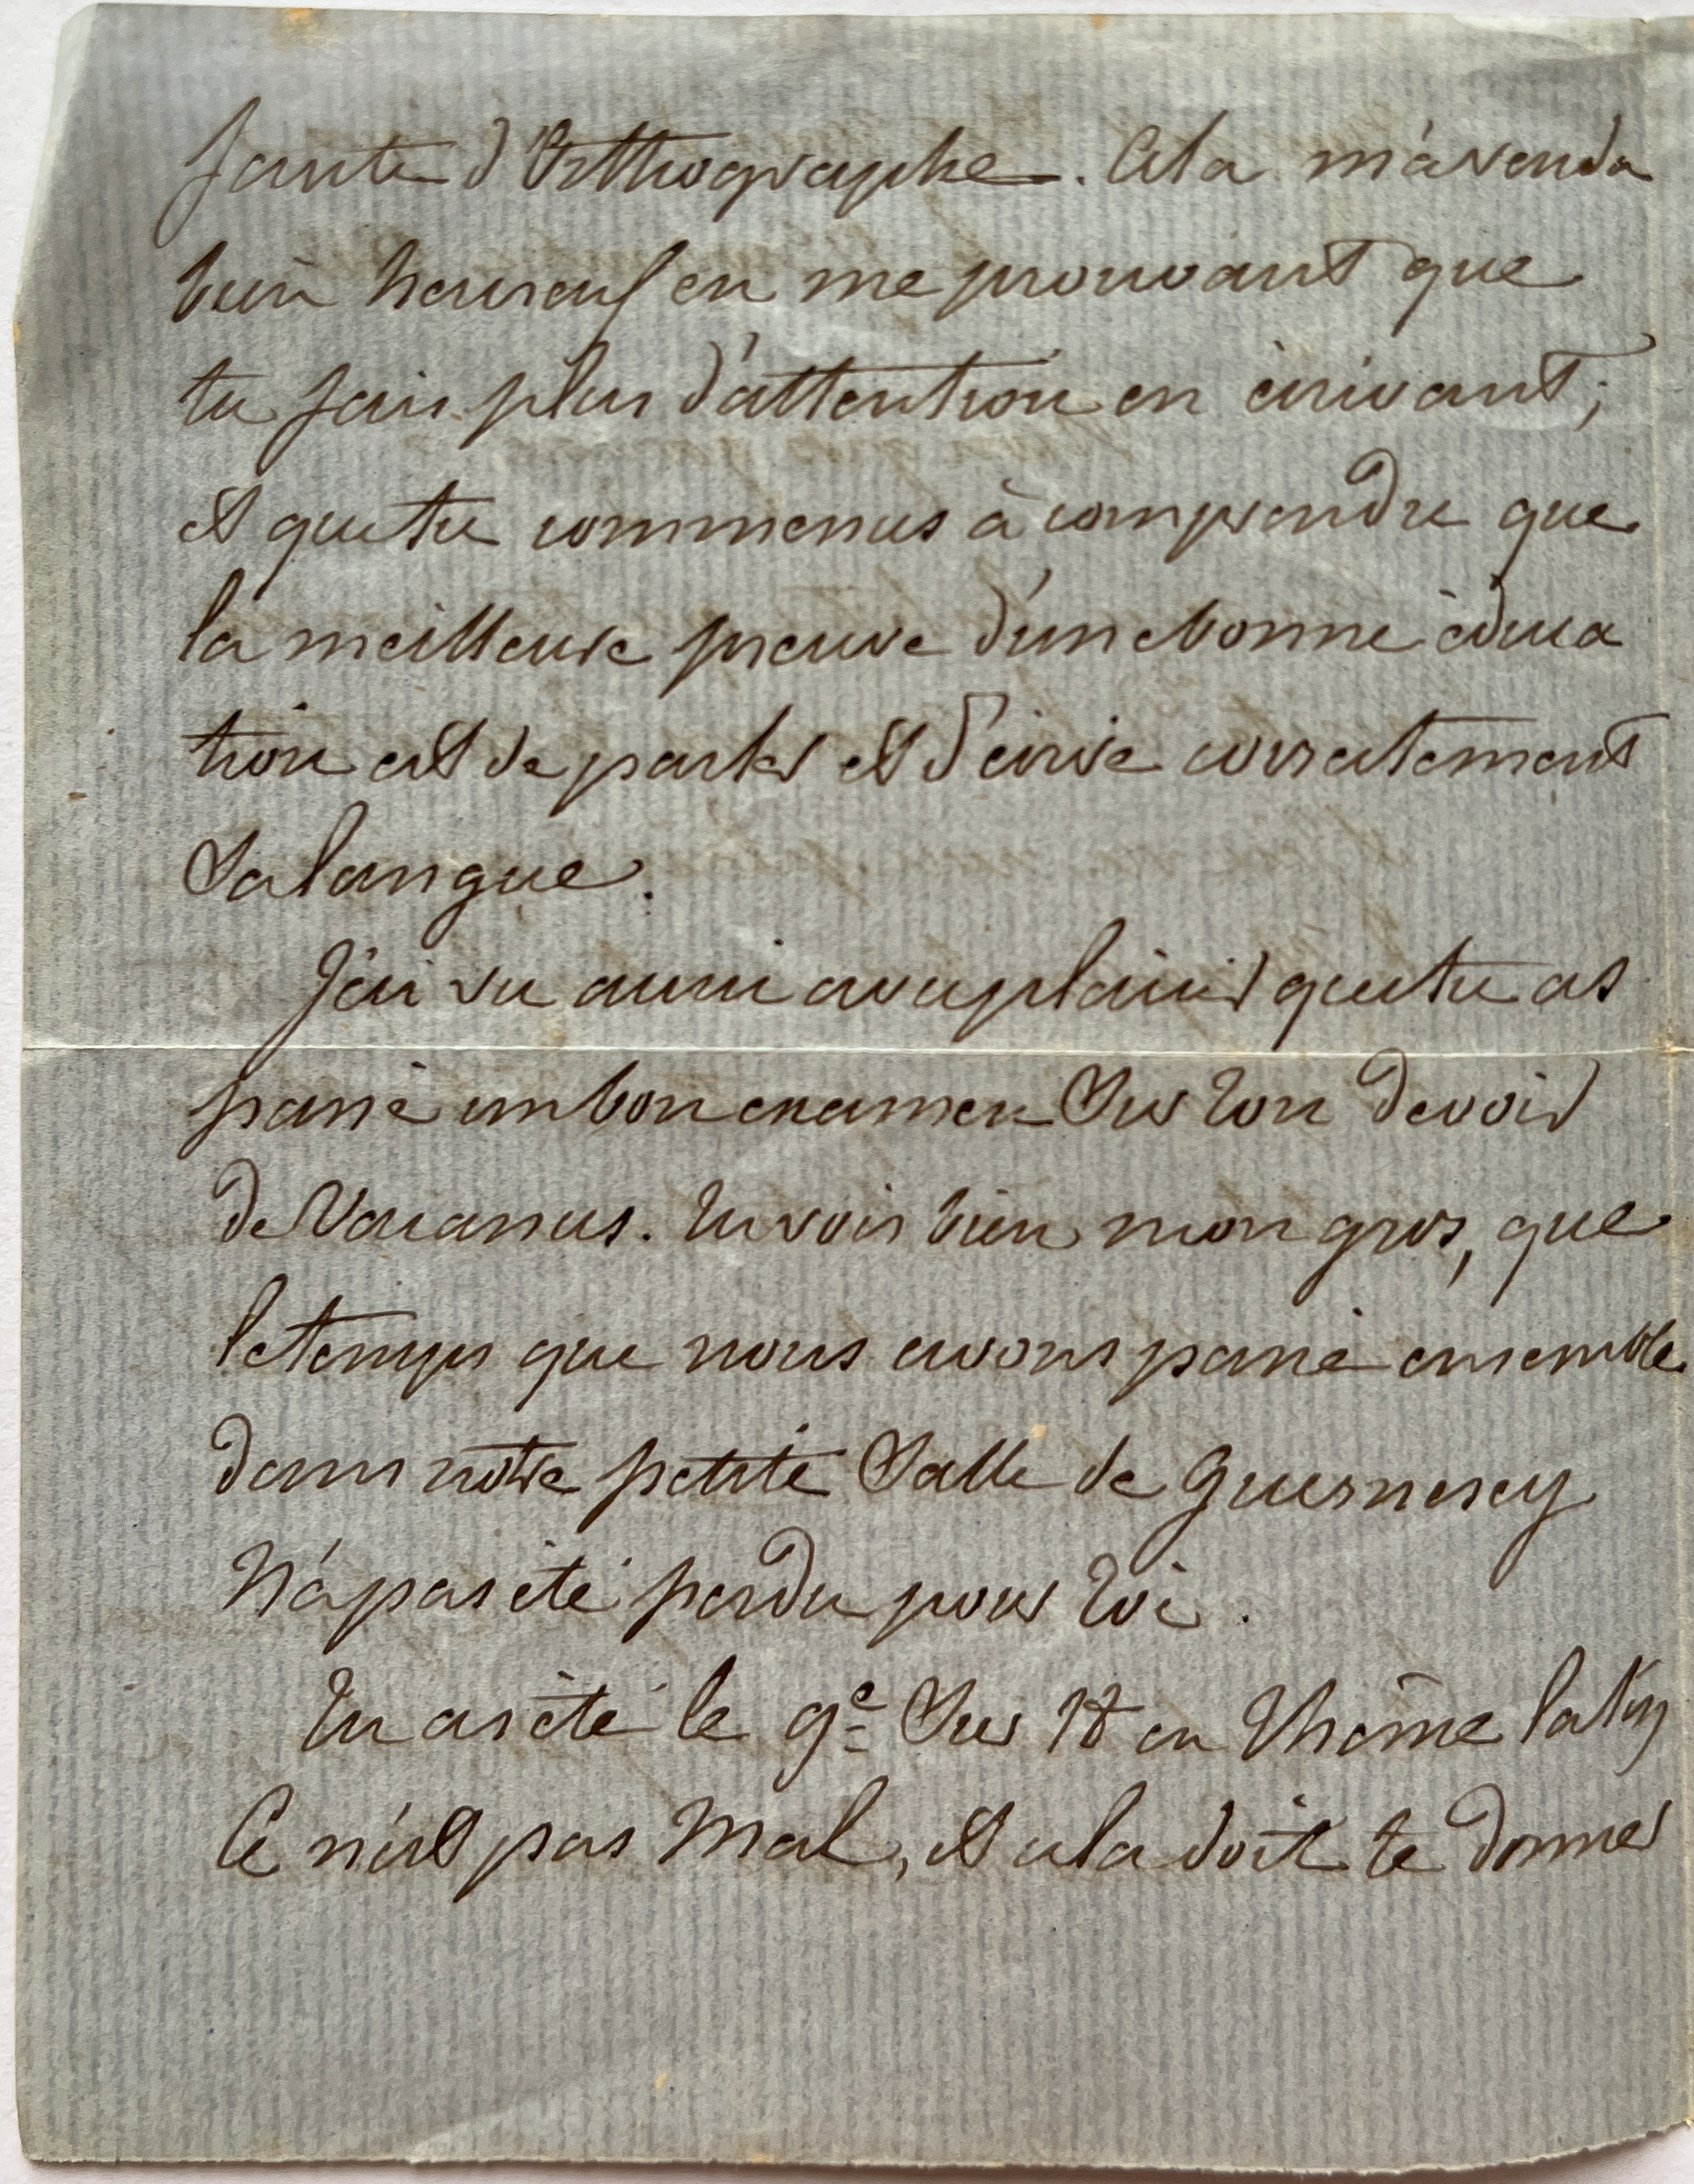 faute d'Orthographe. Cela m'a rendu
bien heureux en me prouvant que
tu fais plus d'attention en écrivant;
et que tu commences à comprendre que
la meilleure preuve d'une bonne éduca
tion est de parler et d'écrire correctement
Sa langue.
J'ai vu aussi avec plaisir que tu as
passé un bon examen Sur ton devoir
de Vacances. Tu vois bien mon gros, que
le temps que nous avons passé ensemble
dans notre petite Salle de Guernesey
N'a pas été perdu pour toi.
Tu as été le 9e Sur 18 en Thème latin
Ce n'est pas Mal, et cela doit te donner